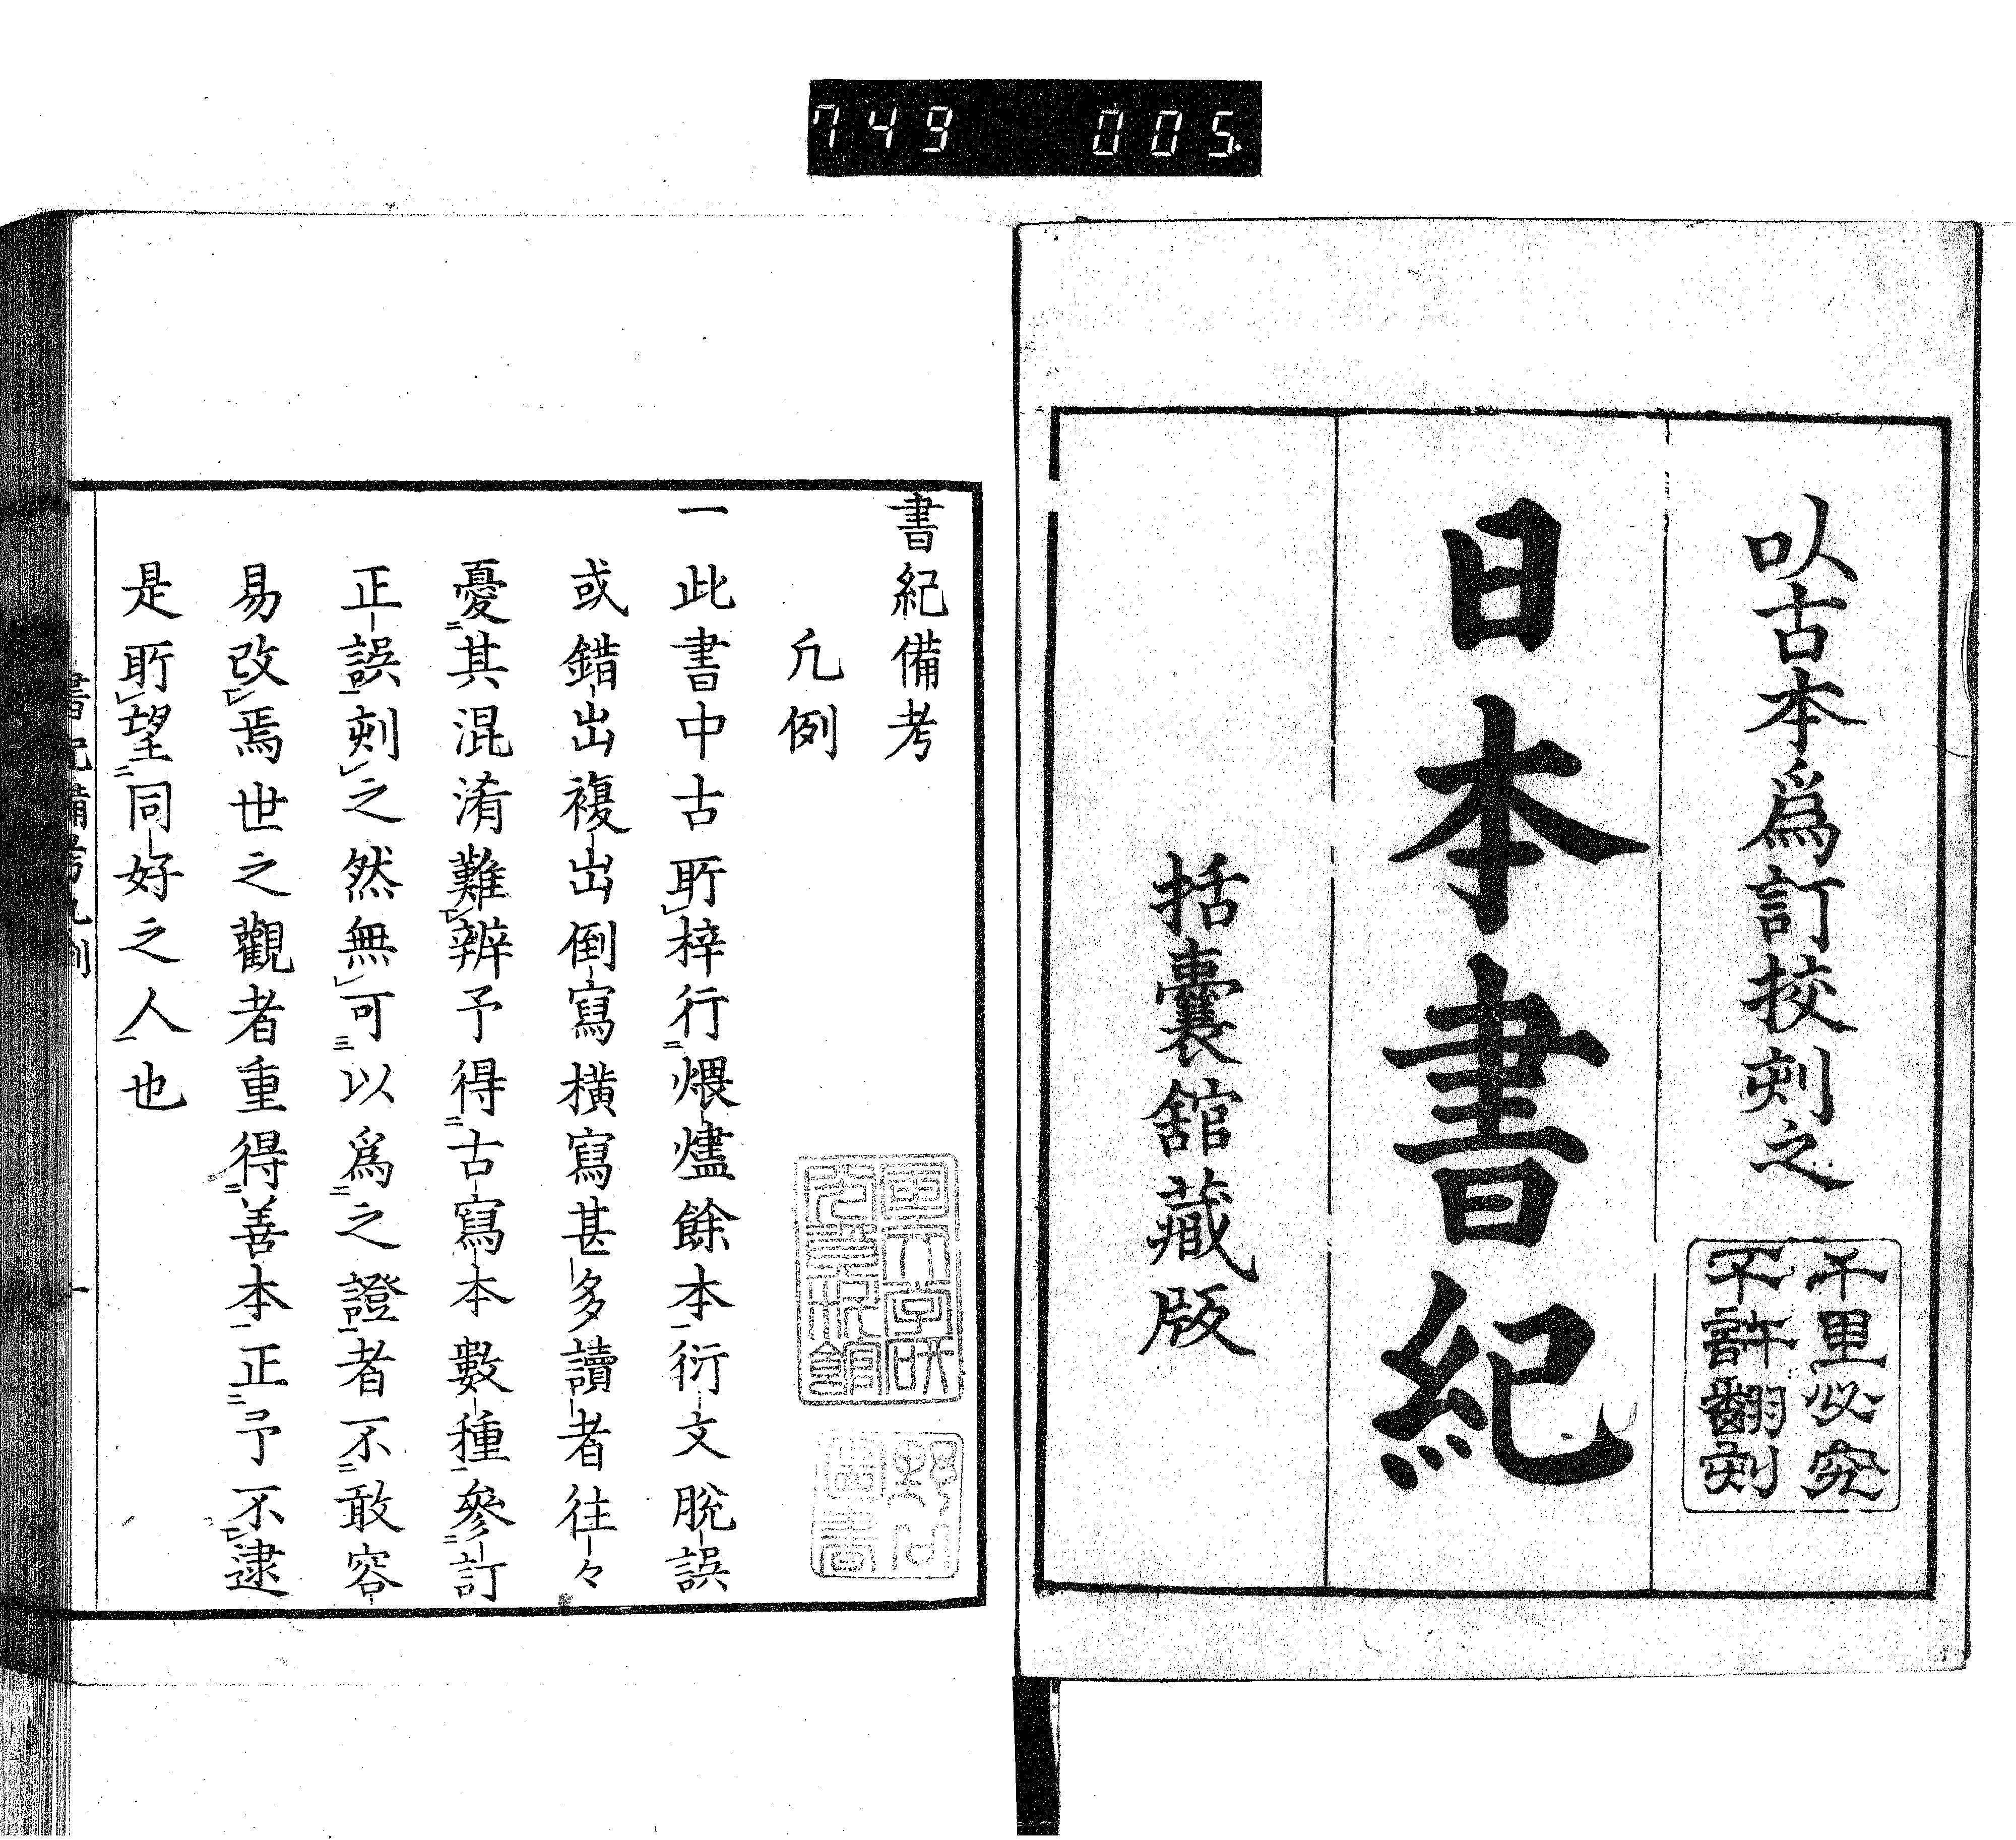 749 005
以古本爲訂挍刻之
千里必究
不許翻刻
日本書紀
括囊舘藏版
書紀備考
凡例
一此書中古所梓行煨燼餘本衍文脫誤
或錯出複出倒寫橫寫甚多讀者往々
憂其混淆難辨予得古寫本數種參訂
正誤刻之然無可以爲之證者不敢容
易改焉世之觀者重得善本正予不逮
是所望同好之人也
書紀備考凡例
一